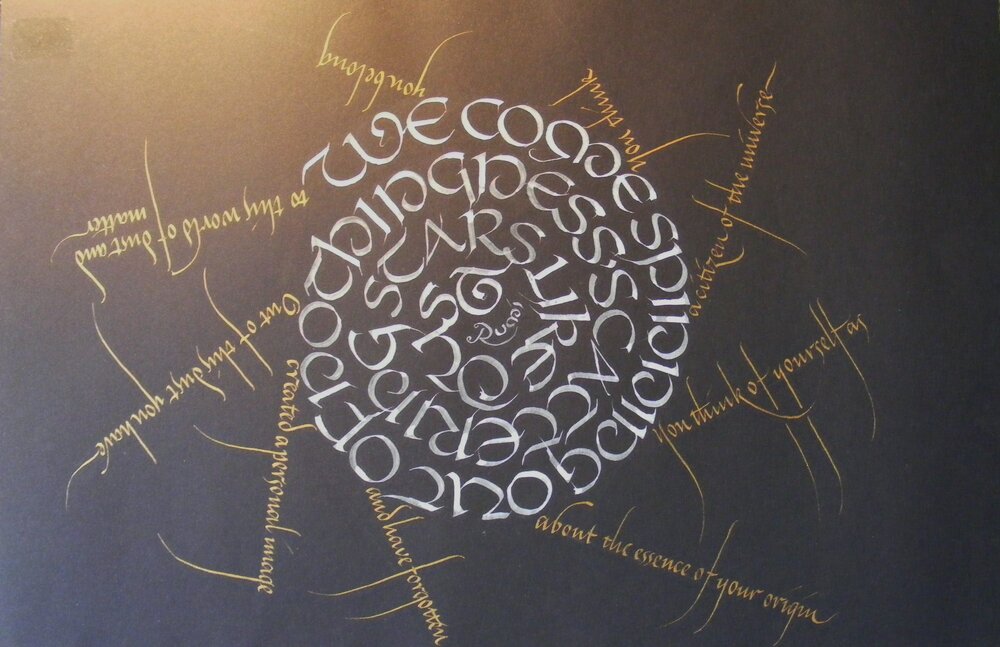 WE COME SPINNING OUT OF NOTHINGNESS SCATTERING STARS LIKE DUST
Rumi
You think of yourself as
a citizen of the universe
you think
you belong
to this world of dust and
matter
Out of this dust you have
created a personal image
and have forgotten
about the essence of your origin